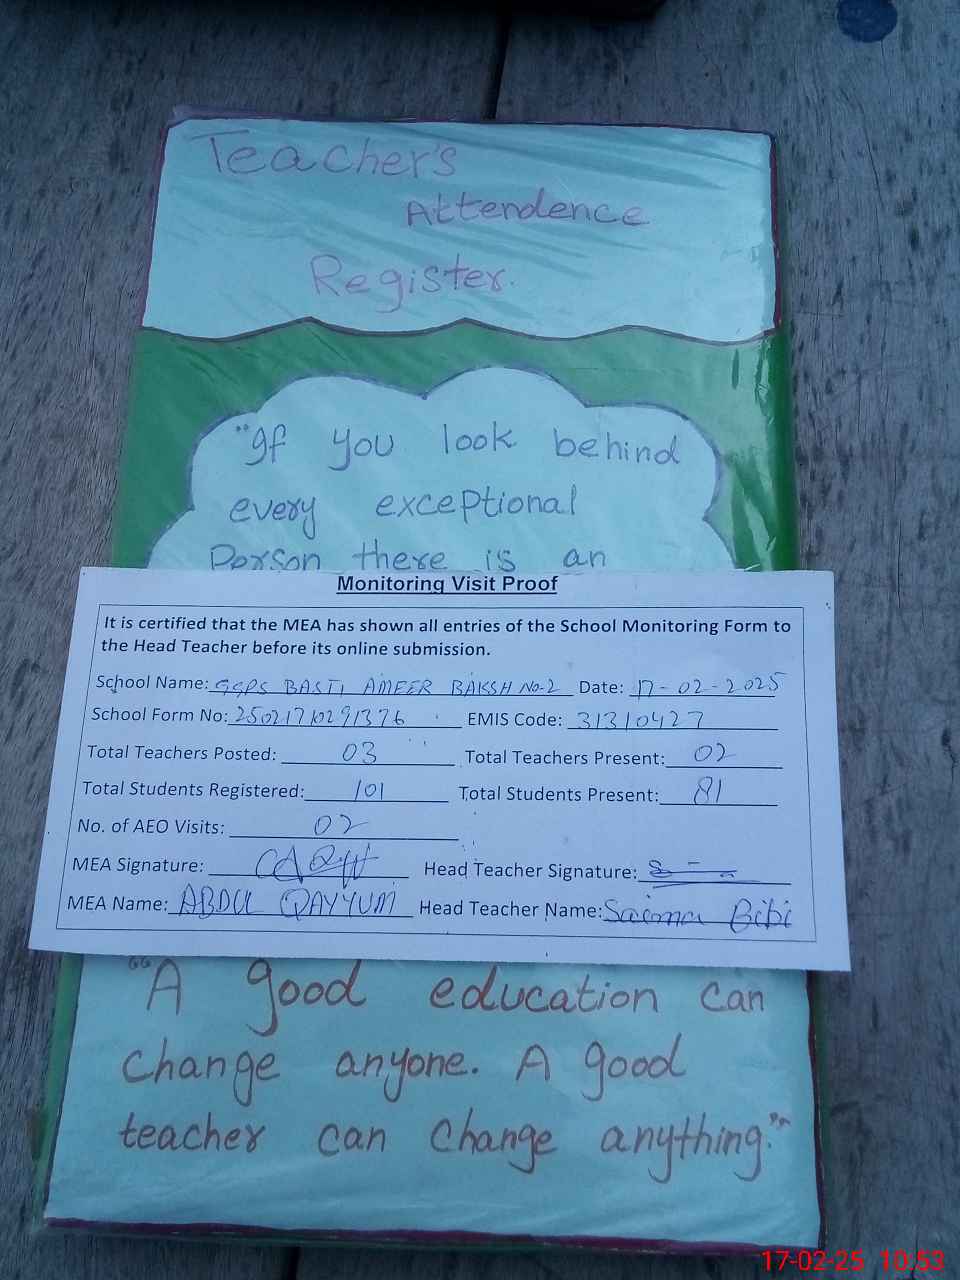 Teacher's
Attendence
Register.
"If you look behind
every exceptional
Person there is an
Monitoring Visit Proof
It is certified that the MEA has shown all entries of the School Monitoring Form to
the Head Teacher before its online submission.
School Name: GGPS BASTI AMEER BAKSH No-2 Date: 17-02-2025
School Form No: 25021710291376 EMIS Code: 31310427
Total Teachers Posted: 03 Total Teachers Present: 02
Total Students Registered: 101 Total Students Present: 81
No. of AEO Visits: 02
MEA Signature: Head Teacher Signature:
MEA Name: ABDUL QAYYUM Head Teacher Name: Saima Bibi
"A good education can
change anyone. A good
teacher can change anything."
17-02-25 10:53